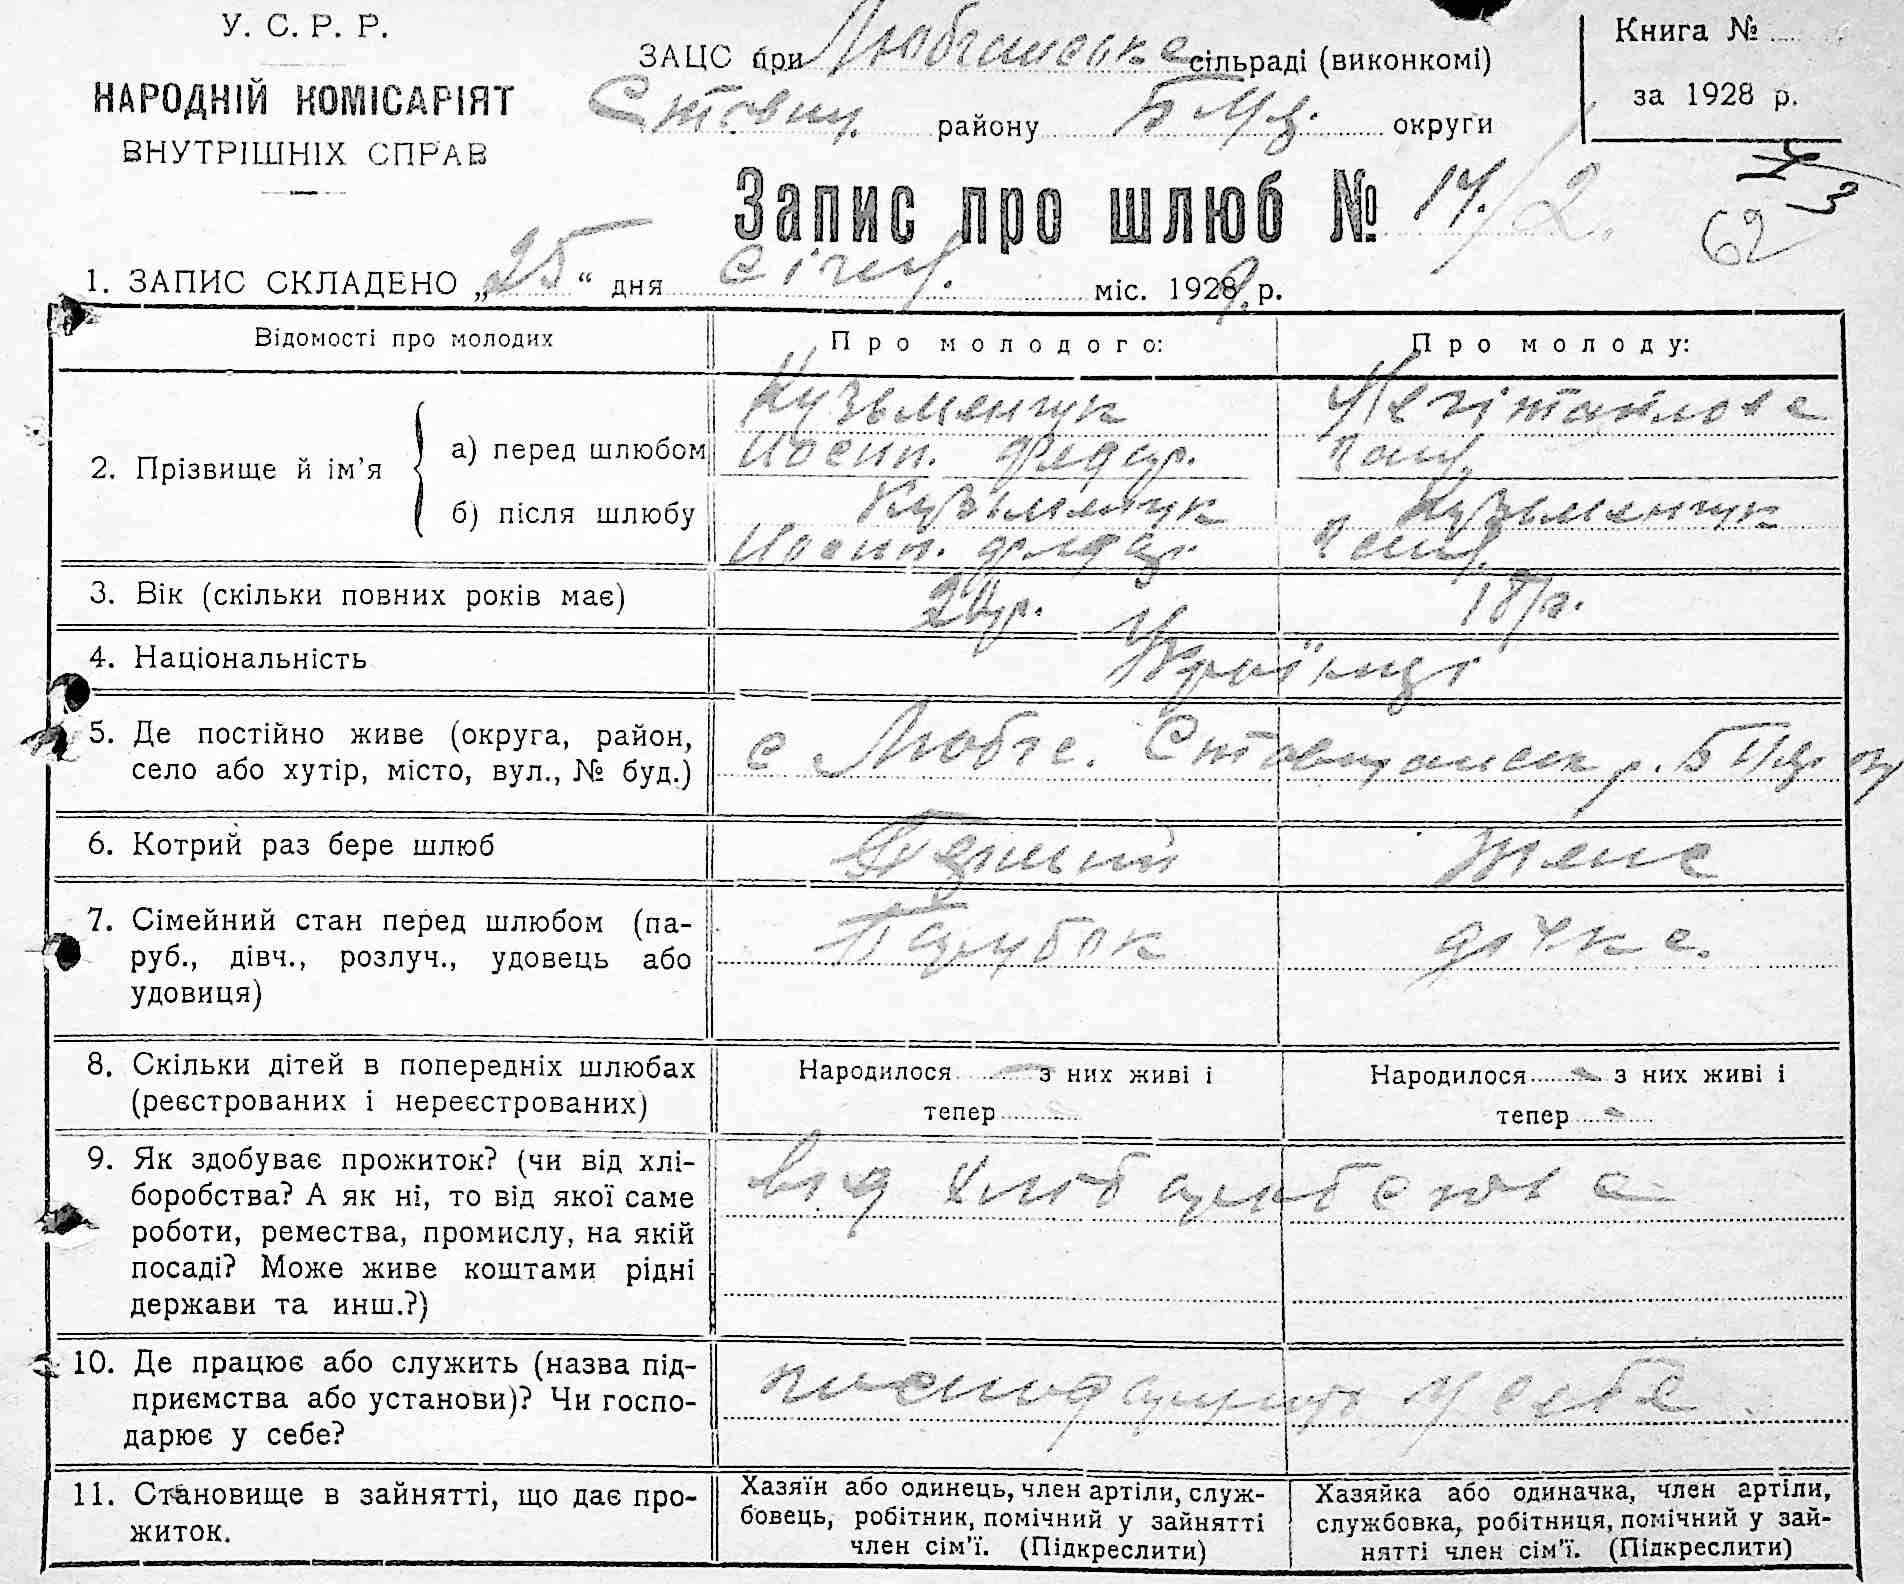 У. С. Р. Р.
НАРОДНІЙ КОМІСАРІЯТ
ВНУТРІШНІХ СПРАВ
ЗАЦС при сільраді (виконкомі)
району округи
Книга №
за 1928 р.
62
Запис про шлюб № 14/2.
1. ЗАПИС СКЛАДЕНО „25“ дня січн. міс. 1929 р.
Відомості про молодих Про молодого: Про молоду:
2. Прізвище й ім’я
а) перед шлюбом Кузьменчук
Йосип. Федор.
б) після шлюбу Кузьменчук Кузьменчук
Йосип. Федор.
3. Вік (скільки повних років має) 18 р.
4. Національність Українці
5. Де постійно живе (округа, район,
село або хутір, місто, вул., № буд.) с Любча. Ставищанськ р. БЦ
6. Котрий раз бере шлюб Перший
7. Сімейний стан перед шлюбом (па-
руб., дівч., розлуч., удовець або
удовиця) Парубок дочка.
8. Скільки дітей в попередніх шлюбах
(реєстрованих і нереєстрованих)
Народилося – з них живі і
тепер –
Народилося – з них живі і
тепер –
9. Як здобуває прожиток? (чи від хлі-
боробства? А як ні, то від якої саме
роботи, ремества, промислу, на якій
посаді? Може живе коштами рідні
держави та инш.?)
від хліборобства
10. Де працює або служить (назва під-
приємства або установи)? Чи госпо-
дарює у себе?
господарують у себе
11. Становище в зайнятті, що дає про-
житок.
Хазяїн або одинець, член артіли, служ-
бовець, робітник, помічний у зайнятті
член сім’ї. (Підкреслити)
Хазяйка або одиначка, член артіли,
службовка, робітниця, помічний у зай-
нятті член сім’ї. (Підкреслити)